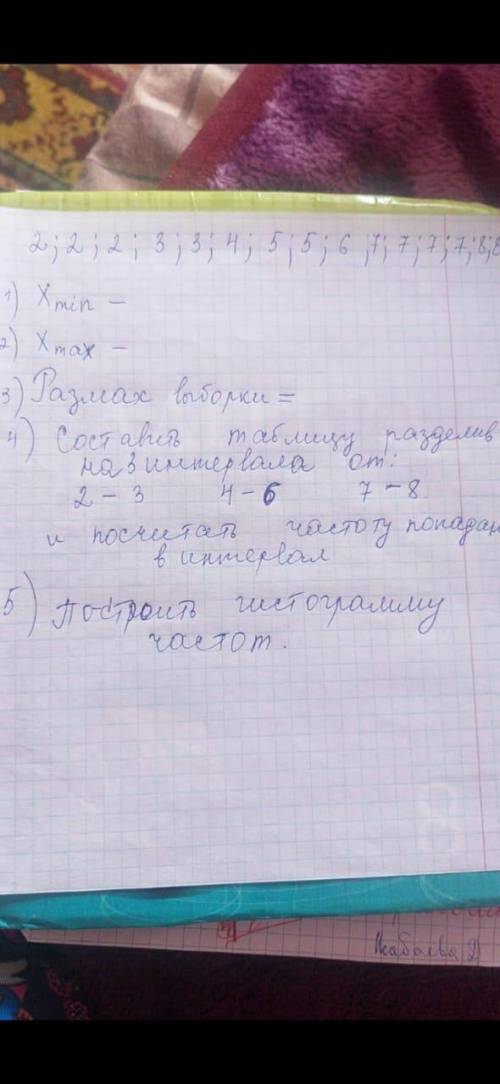 2; 2; 2; 3; 3; 4; 5; 5; 6; 7; 7; 7; 7; 8; 8
1) Xmin –
2) Xmax –
3) Размах выборки =
4) Составить таблицу разделив
на 3 интервала от:
2 – 3 4 – 6 7 – 8
и посчитать частоту попадан
в интервал
5) Построить гистограмму
частот.